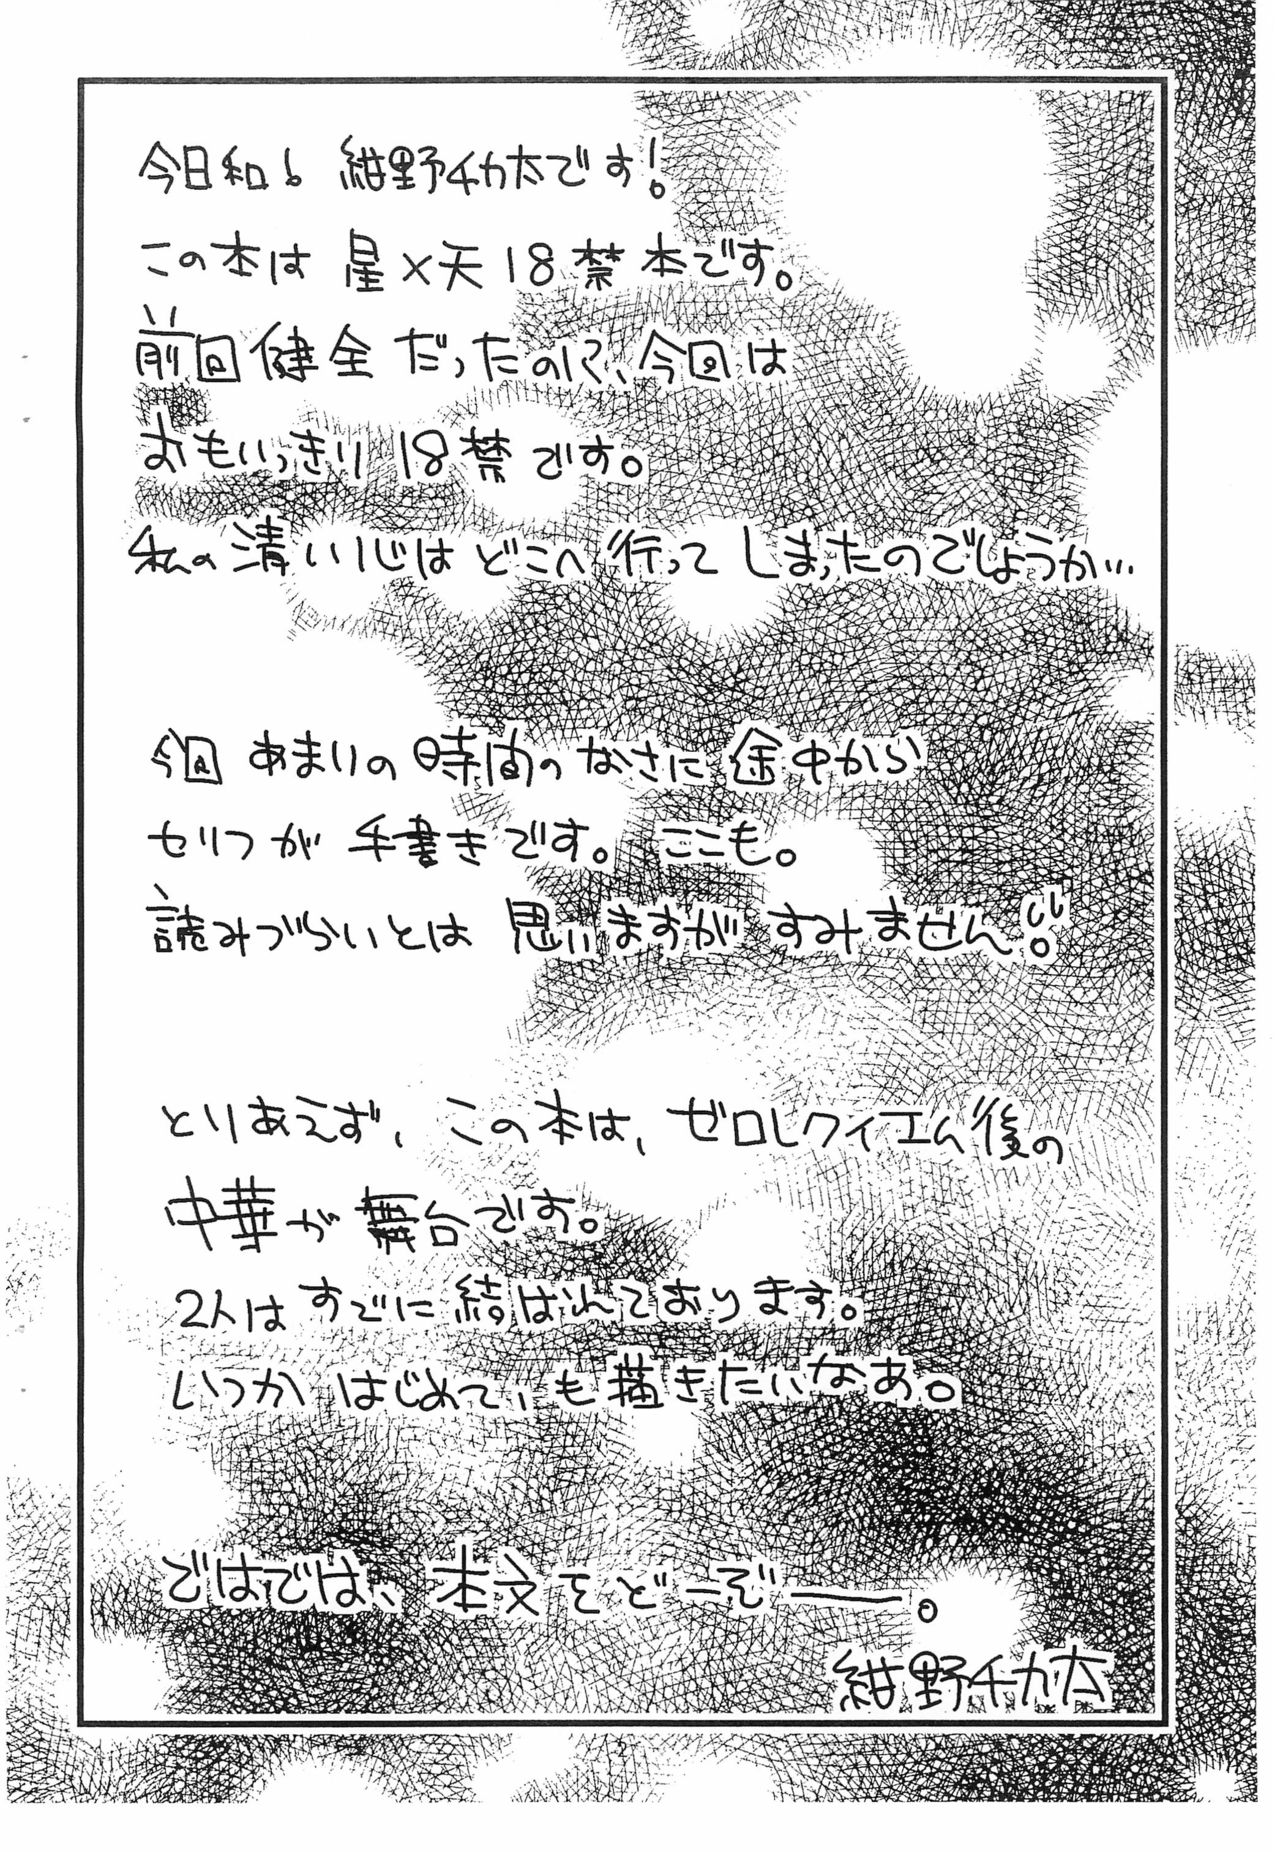 今日和！ 紺野チカ太です！
この本は 星×天18禁本です。
前回健全だったのに、今回は
おもいっきり18禁です。
私の清い心はどこへ行ってしまったのでしょうか…
今回あまりの時間のなさに途中から
セリフが手書きです。ここも。
読みづらいとは思いますがすみません!!
とりあえず、この本は、ゼロレクイエム後の
中華が舞台です。
2人はすでに結ばれております。
いつかはじめても描きたいなあ。
ではでは、本文をどーぞー。
紺野チカ太